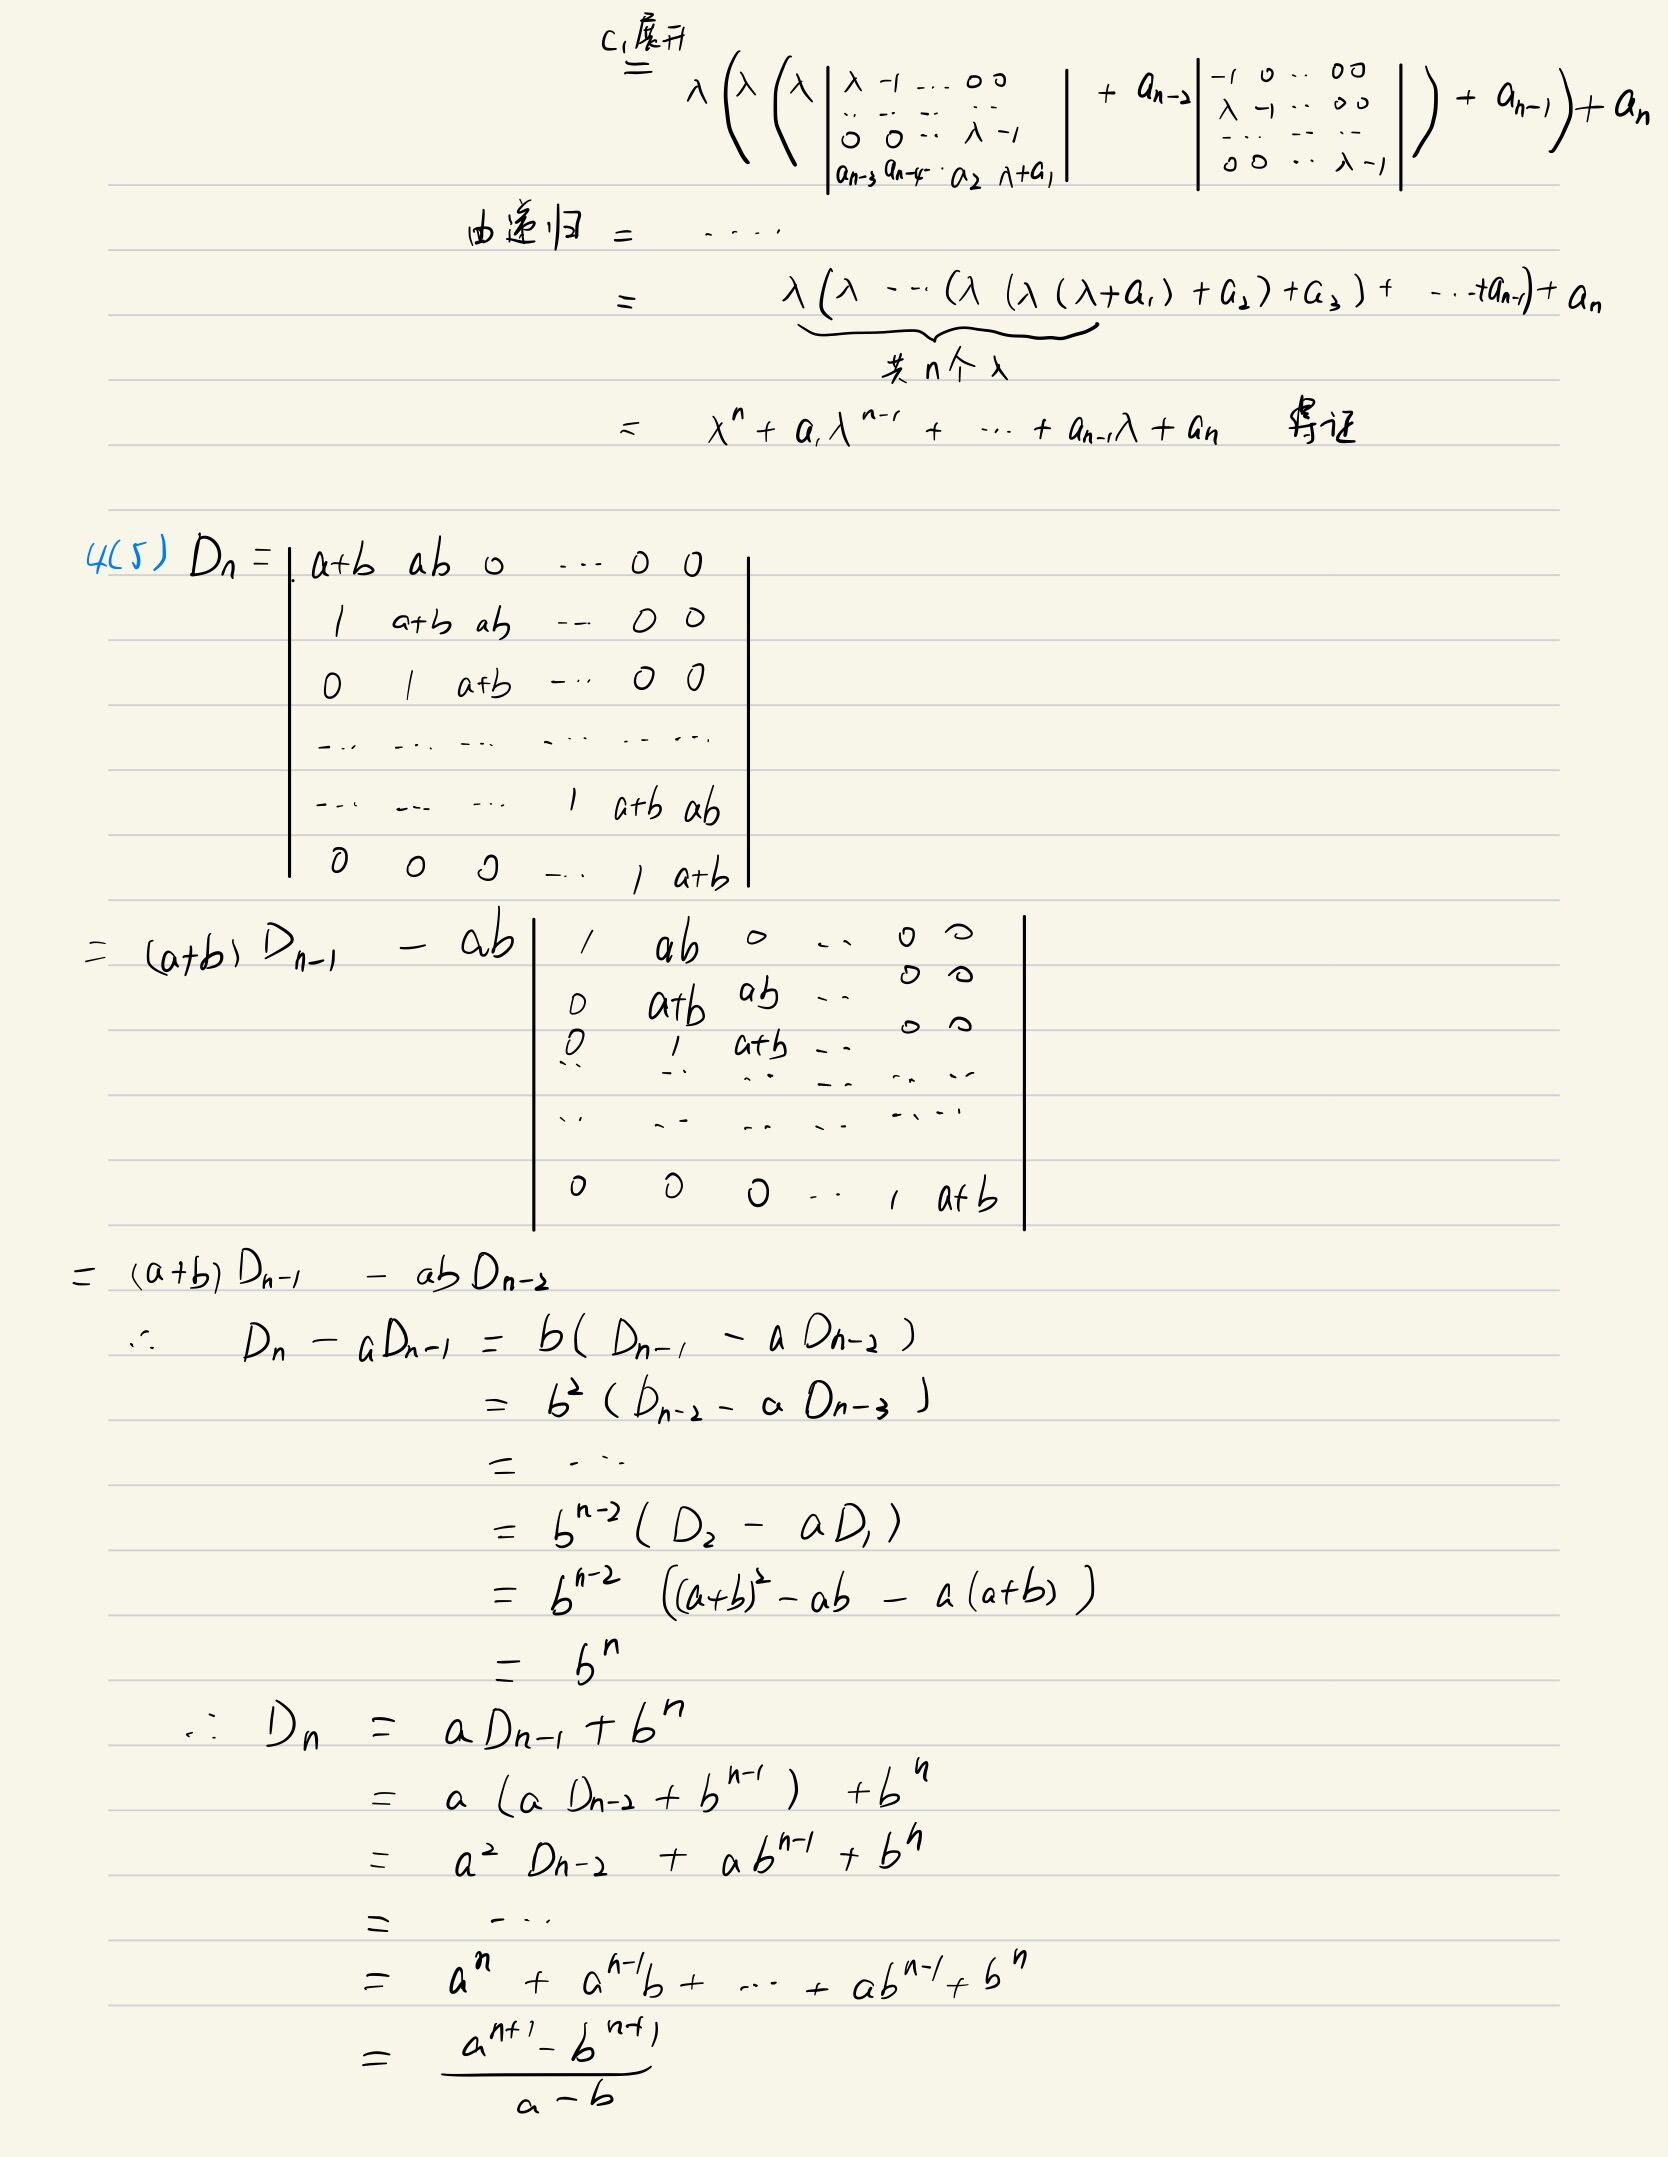 C₁展开
= λ(λ(λ| λ -1 ... 0 0 | + aₙ₋₂| -1 0 .. 0 0 |) + aₙ₋₁) + aₙ
.. -- ... .. λ -1 .. 0 0
0 0 .. λ -1 -... -- --
aₙ₋₃ aₙ₋₄ .. a₂ λ+a₁ 0 0 .. λ -1
由递归 = ....
= λ(λ ...(λ(λ(λ+a₁)+a₂)+a₃)+ ...+aₙ₋₁)+aₙ
共n个λ
= λⁿ + a₁λⁿ⁻¹ + ... + aₙ₋₁λ + aₙ 得证
4(5) Dₙ = | a+b ab 0 ... 0 0 |
1 a+b ab ... 0 0
0 1 a+b ... 0 0
... ... ... ... ... ...
... ... ... 1 a+b ab
0 0 0 ... 1 a+b
= (a+b) Dₙ₋₁ - ab | 1 ab 0 ... 0 0 |
0 a+b ab .. 0 0
0 1 a+b .. 0 0
.. .. .. .. .. ..
.. .. .. .. .. ..
0 0 0 .. 1 a+b
= (a+b) Dₙ₋₁ - ab Dₙ₋₂
∴ Dₙ - aDₙ₋₁ = b( Dₙ₋₁ - a Dₙ₋₂ )
= b² ( Dₙ₋₂ - a Dₙ₋₃ )
= ...
= bⁿ⁻² ( D₂ - aD₁ )
= bⁿ⁻² ((a+b)² - ab - a(a+b))
= bⁿ
∴ Dₙ = aDₙ₋₁ + bⁿ
= a (a Dₙ₋₂ + bⁿ⁻¹) + bⁿ
= a² Dₙ₋₂ + abⁿ⁻¹ + bⁿ
= ...
= aⁿ + aⁿ⁻¹b + ... + abⁿ⁻¹ + bⁿ
aⁿ⁺¹ - bⁿ⁺¹
=
a - b